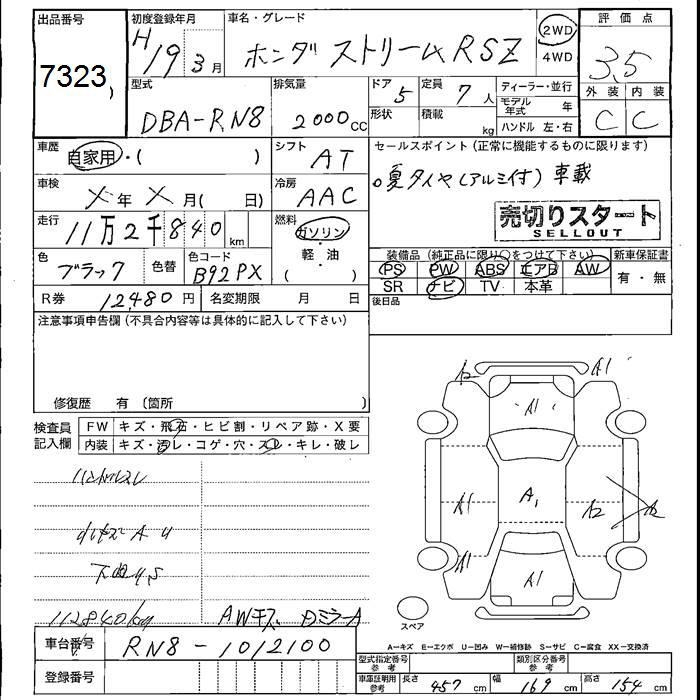 出品番号 初度登録年月 車名・グレード 評価点
7323
H19 3月 ホンダ ストリーム RSZ 2WD 4WD 3.5
型式 排気量 ドア 定員 ティーラー・並行 外装 内装
DBA-RN8 2000cc 5 7人 モデル年式 年 C C
形状 積載 kg ハンドル 左・右
車歴 自家用・( ) シフト AT セールスポイント(正常に機能するものに限ります)
車検 メ年メ月( 日) 冷房 AAC 夏タイヤ(アルミ付)車載
走行 11万2千840km 燃料 ガソリン 軽・油 ( )
売切りスタート
SELLOUT
色 ブラック 色替 色コード B92PX
装備品(純正品に限り○をつけて下さい) 新車保証書
PS PW ABS エアB AW 有・無
SR ナビ TV 本革
R券 12480円 名変期限 月 日 後日品
注意事項申告欄(不具合内容等は具体的に記入して下さい)
修復歴 有(箇所 )
検査員記入欄 FW キズ・飛石・ヒビ割・リペア跡・X要
内装 キズ・汚レ・コゲ・穴・スレ・キレ・破レ
A2 A1
A1
A1 A1 A2 A2
A1
ハンドルスレ
112840kg AWキズ 
スペア
A-キズ E-エクボ U-凹み W-補修跡 S-サビ C-腐食 XX-交換済
車台番号 RN8-1012100
型式指定番号 参考 類別区分番号 参考
登録番号
車庫証明用 参考 長さ 457cm 幅 169cm 高さ 154cm